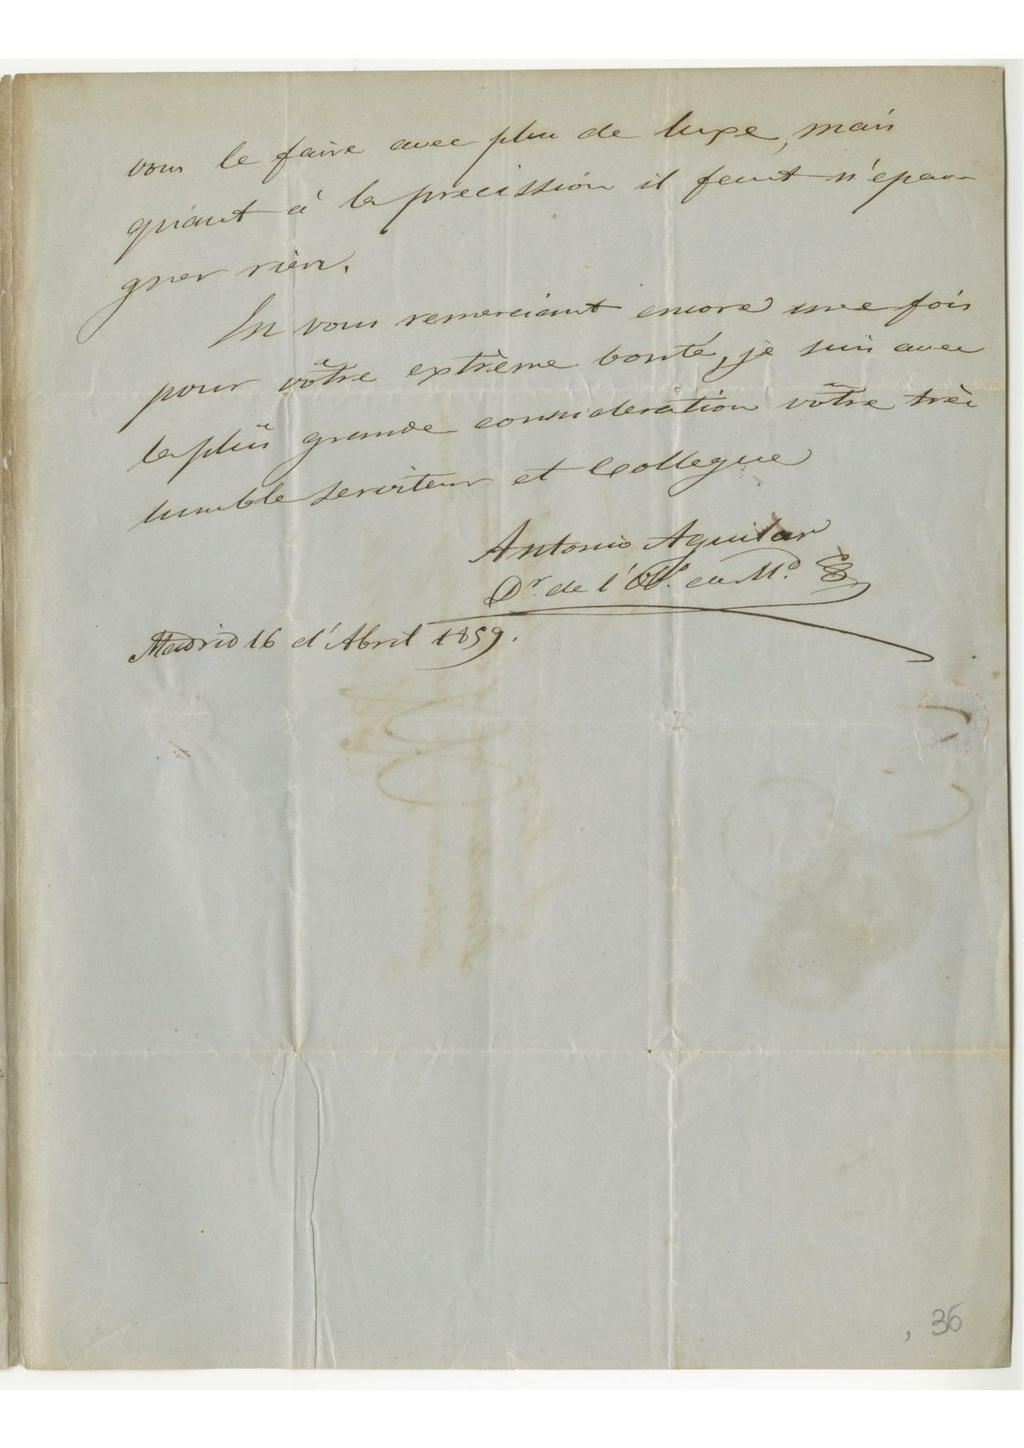 vous le faire avec plus de luxe, mais
quant à la precission il faut n'épar-
gner rien.
En vous remerciant encore une fois
pour vôtre extrème bonté, je suis avec
la plus grande consideration vôtre très
humble serviteur et Collegue
Antonio Aguilar
Dr. de l'Obs. de Md.
Madrid 16 d'Abril 1859.
36